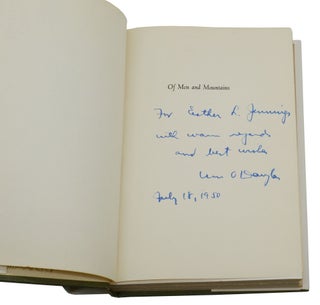 Of Men and Mountains
For Esther L. Jennings
with warm regards
and best wishes
Wm O Douglas
July 18, 1950